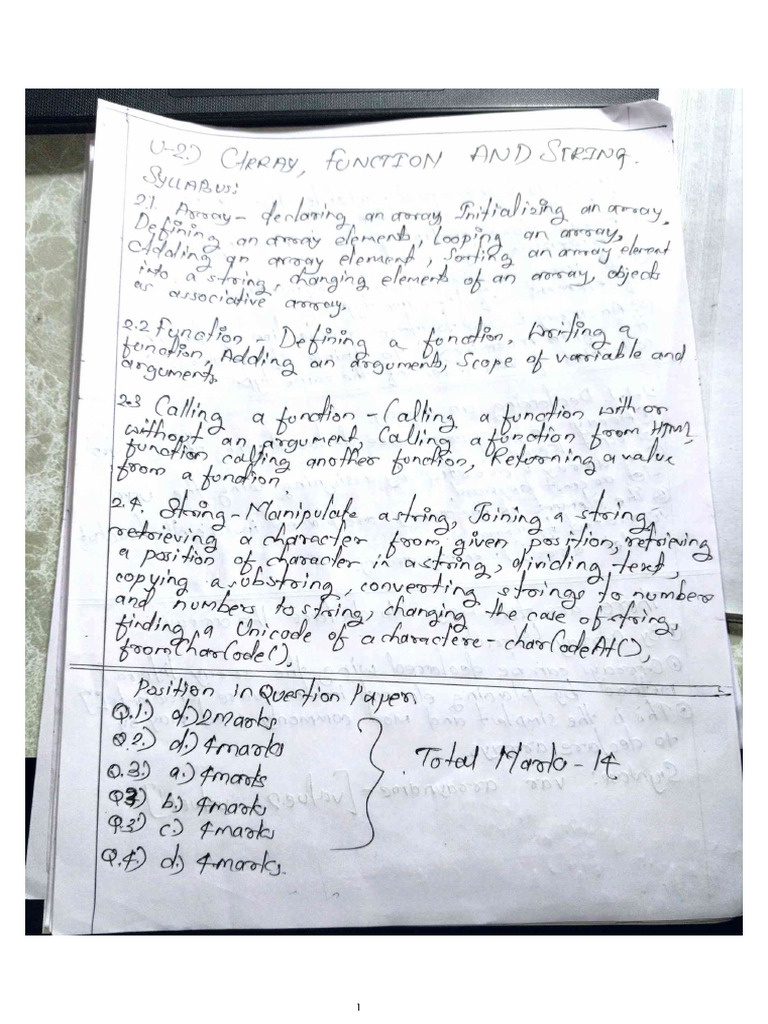 U-2.) ARRAY, FUNCTION AND STRING.
SYLLABUS:
2.1. Array - declaring an array Initializing an array,
Defining an array elements, Looping an array,
Adding an array element, Sorting an array element
into a string, changing element of an array, objects
as associative array.
2.2 Function - Defining a function, Writing a
function, Adding an arguments, Scope of variable and
arguments.
2.3 Calling a function - Calling a function with or
without an argument, Calling a function from HTML,
function calling another function, Returning a value
from a function
2.4. String - Manipulate a string, Joining a string,
retrieving a character from given position, retrieving
a position of character in a string, dividing text,
copying a substring, converting strings to numbers
and numbers to string, changing the case of string,
finding a Unicode of a charactere - charCodeAt(),
fromCharCode(),
Position in Question Paper
Q.1.) d.) 2marks
Q.2.) d.) 4marks
Q.3.) a.) 4marks
Q3) b.) 4marks
Q.3) c.) 4marks
Q.4.) d.) 4marks.
Total Mark - 14
1